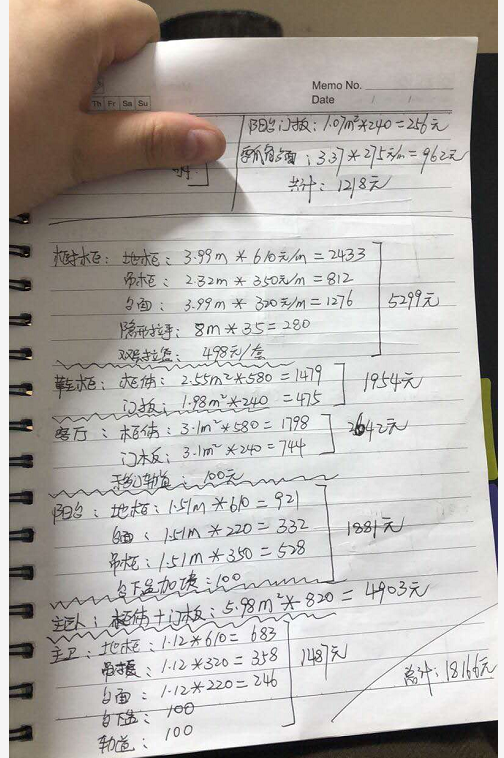 Memo No.
Th Fr Sa Su
Date / /
阳台门板：1.07m²*240=256元
飘窗台面：3.37*275元/m=962元
共计：1218元
橱柜：地柜：3.99m*610元/m=2433
吊柜：2.32m*350元/m=812
台面：3.99m*320元/m=1276
隐形拉手：8m*35=280
双层拉篮：498元/套
5299元
鞋柜：柜体：2.55m²*580=1479
门板：1.98m²*240=475
1954元
客厅：柜体：3.1m²*580=1798
门板：3.1m²*240=744
移门轨道：100元
2642元
阳台：地柜：1.51m*610=921
台面：1.51m*220=332
吊柜：1.51m*350=528
台下盆加费：100
1881元
主卧：柜体+门板：5.98m²*820=4903元
主卫：地柜：1.12*610=683
1.12*320=358
台面：1.12*220=246
台下盆：100
轨道：100
1487元
总计：18166元